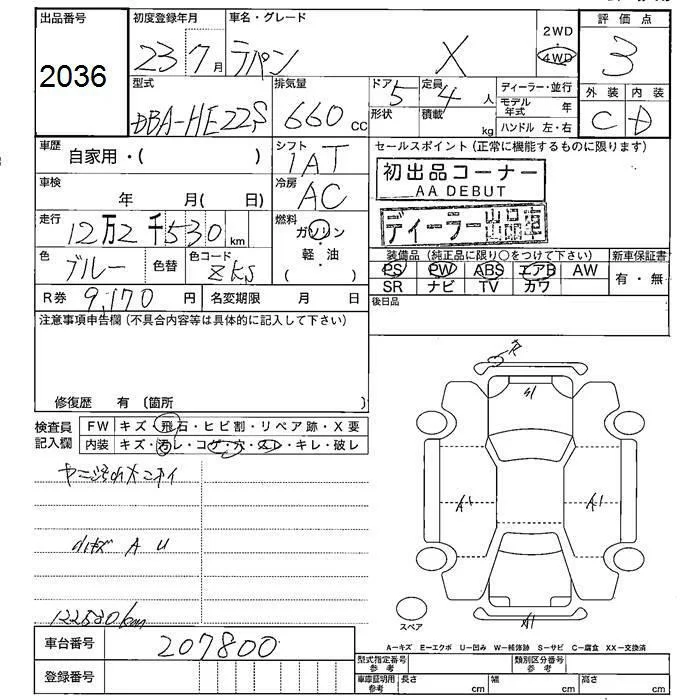 出品番号 初度登録年月 車名・グレード 2WD 評価点
2036 23 7月 ラパン X 4WD 3
型式 排気量 ドア 5 定員 4人 ディーラー・並行 外装 内装
DBA-HE22S 660cc 形状 積載 kg モデル年式 年 C D
ハンドル 左・右
車歴 自家用・( ) シフト 1AT セールスポイント(正常に機能するものに限ります)
初出品コーナー
AA DEBUT
車検 年 月( 日) 冷房 AC
ディーラー出品車
走行 12万2千530km 燃料 ガソリン
軽・油
( )
色 ブルー 色替 色コード ZKS 装備品(純正品に限り○をつけて下さい) 新車保証書
PS PW ABS エアB AW 有・無
SR ナビ TV カワ
R券 9,170円 名変期限 月 日 後日品
注意事項申告欄(不具合内容等は具体的に記入して下さい)
修復歴 有 (箇所 )
検査員記入欄 FW キズ・飛石・ヒビ割・リペア跡・X要
内装 キズ・汚レ・コゲ・穴・スレ・キレ・破レ
A1
A1
A1
A U
122530km
スペア
車台番号 207800
A-キズ E-エクボ U-凹み W-補修跡 S-サビ C-腐食 XX-交換済
登録番号
型式指定番号 参考 類別区分番号 参考
車庫証明用 参考 長さ cm 幅 cm 高さ cm